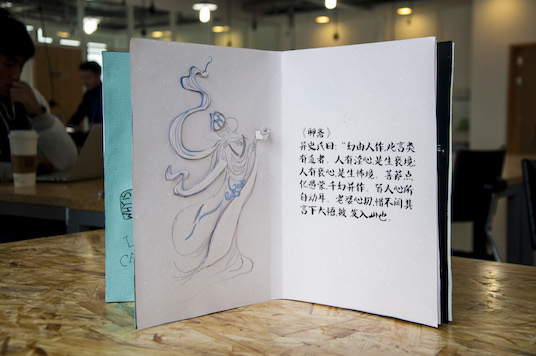 《聊斋》
异史氏曰:“幻由人作,此言类
有道者。人有淫心,是生亵境;
人有亵心,是生怖境。菩萨点
化愚蒙,千幻并作,皆人心所
自动耳。老婆心切,惜不闻其
言下大悟,披发入山也。